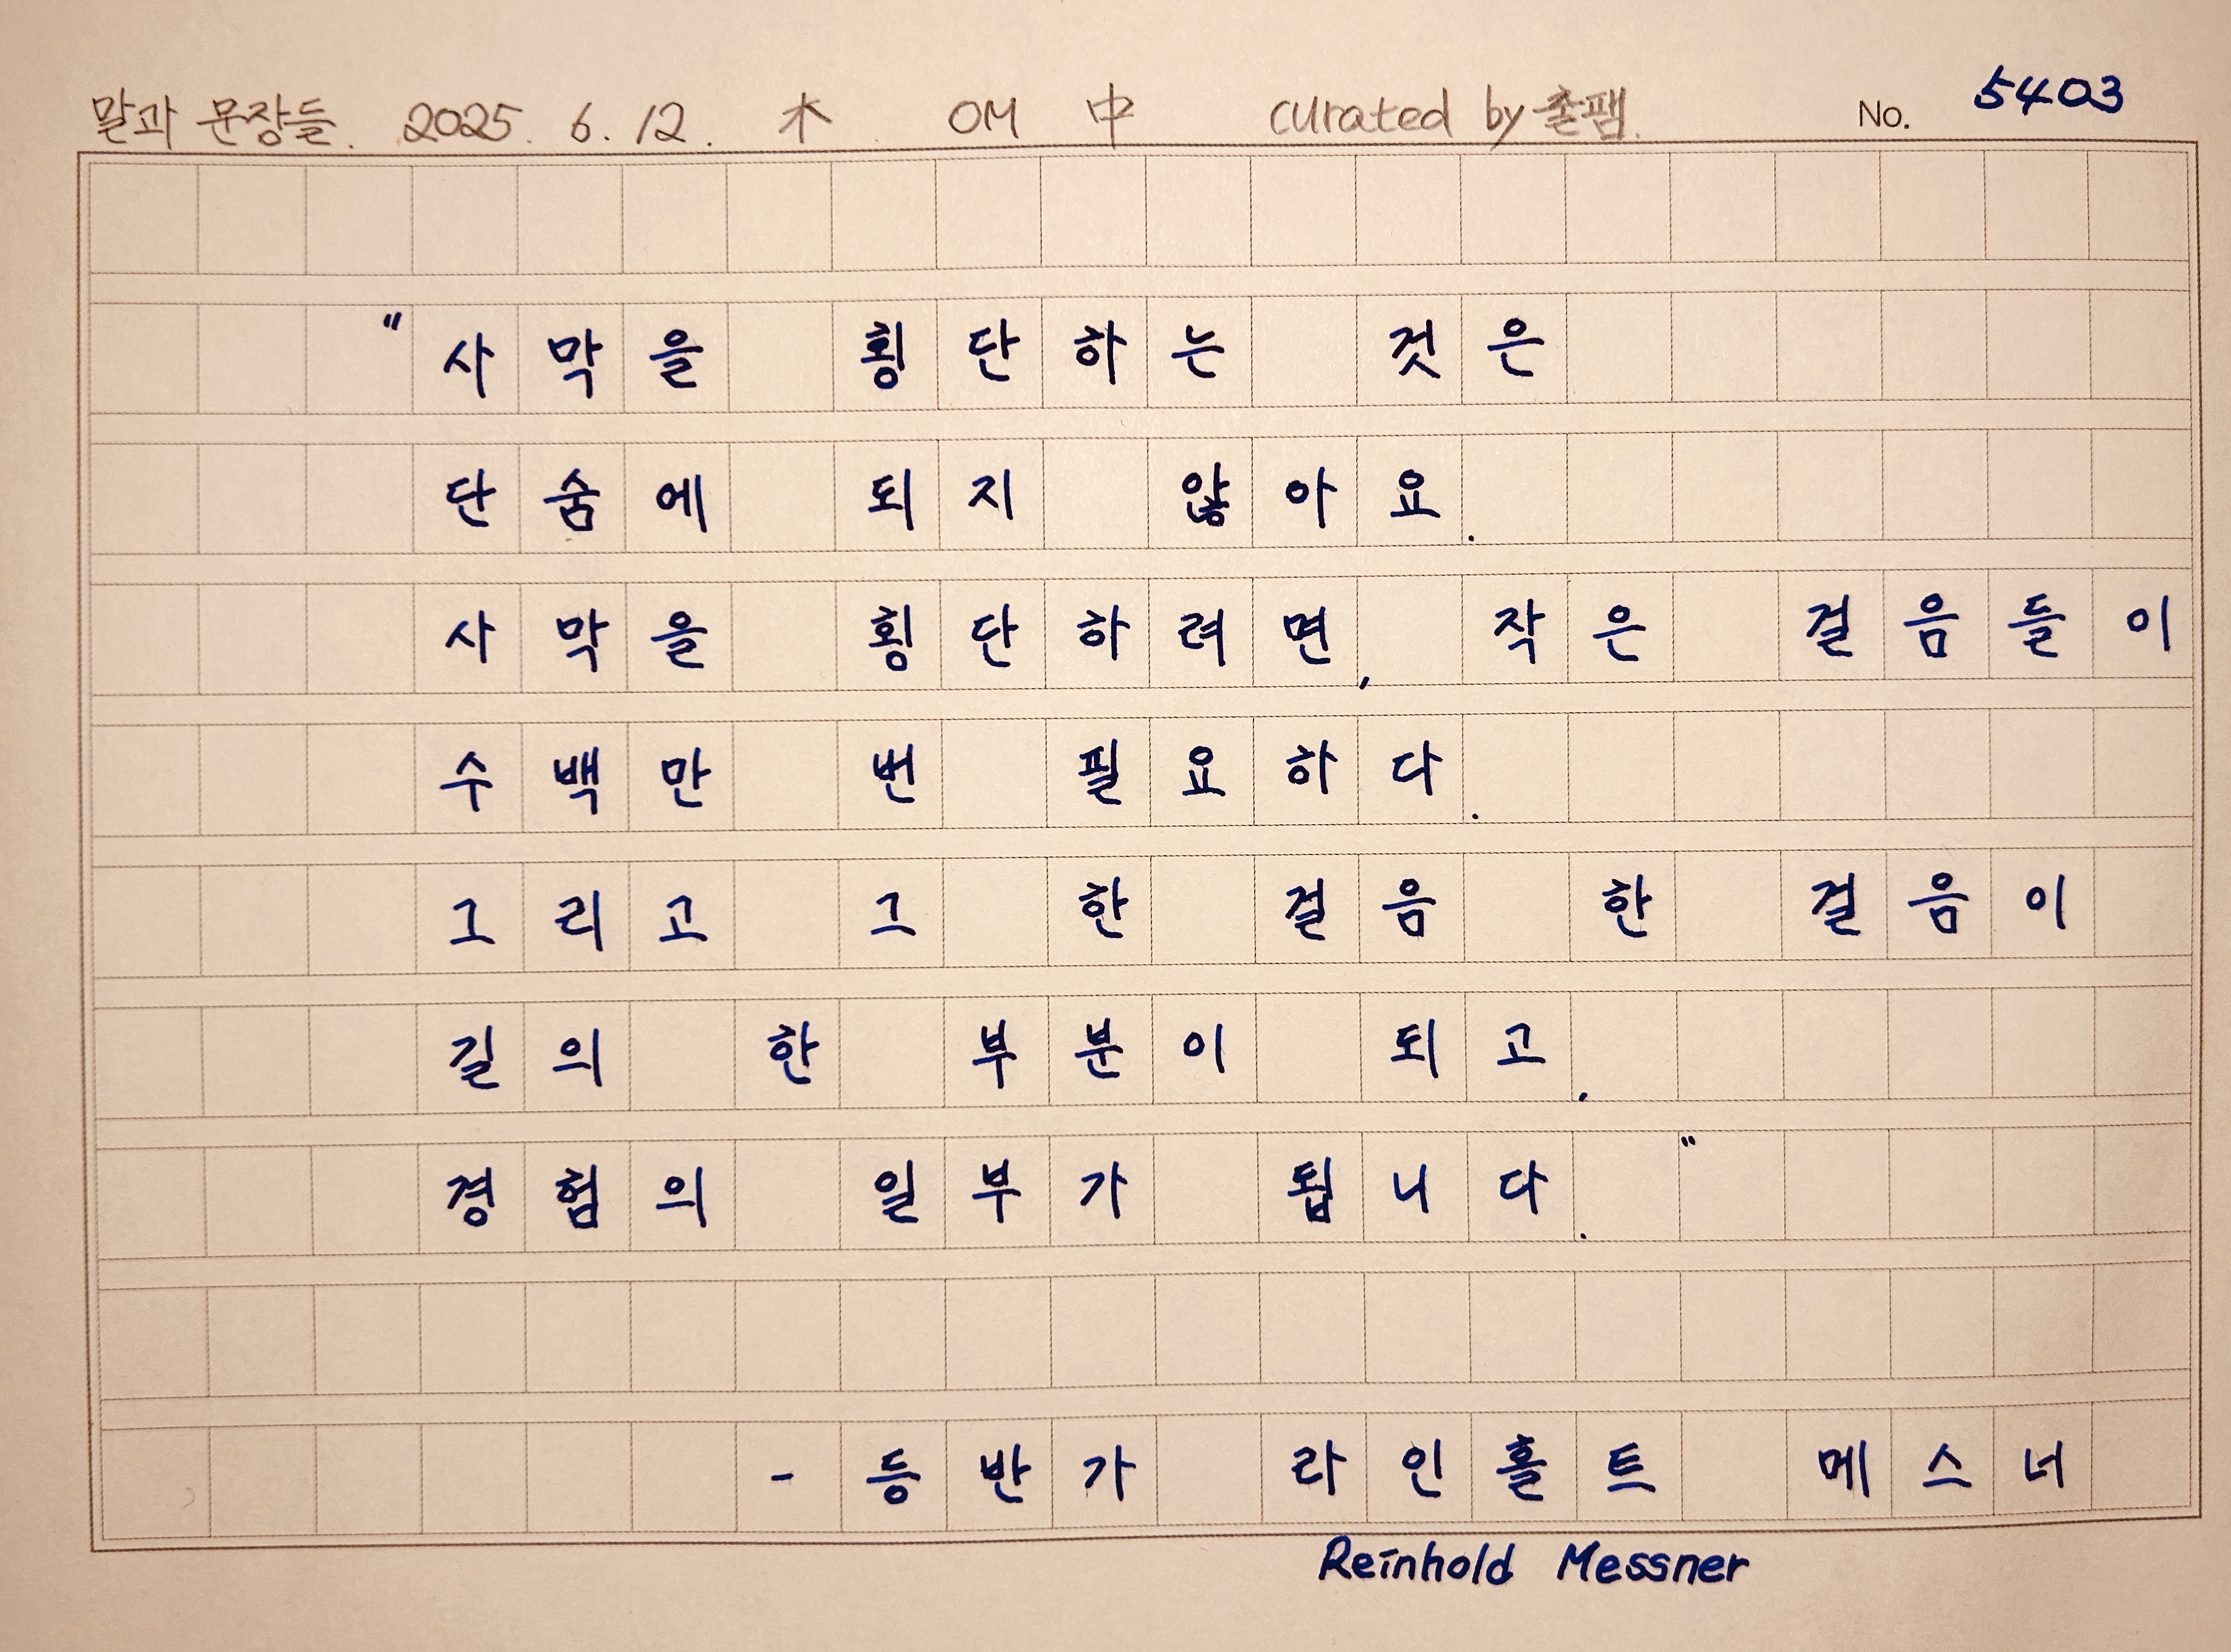 말과 문장들. 2025. 6. 12. 木. OM 中 curated by 촐팸. No. 5403
"사막을 횡단하는 것은
단숨에 되지 않아요.
사막을 횡단하려면, 작은 걸음들이
수백만 번 필요하다.
그리고 그 한 걸음 한 걸음이
길의 한 부분이 되고,
경험의 일부가 됩니다."
- 등반가 라인홀트 메스너
Reinhold Messner